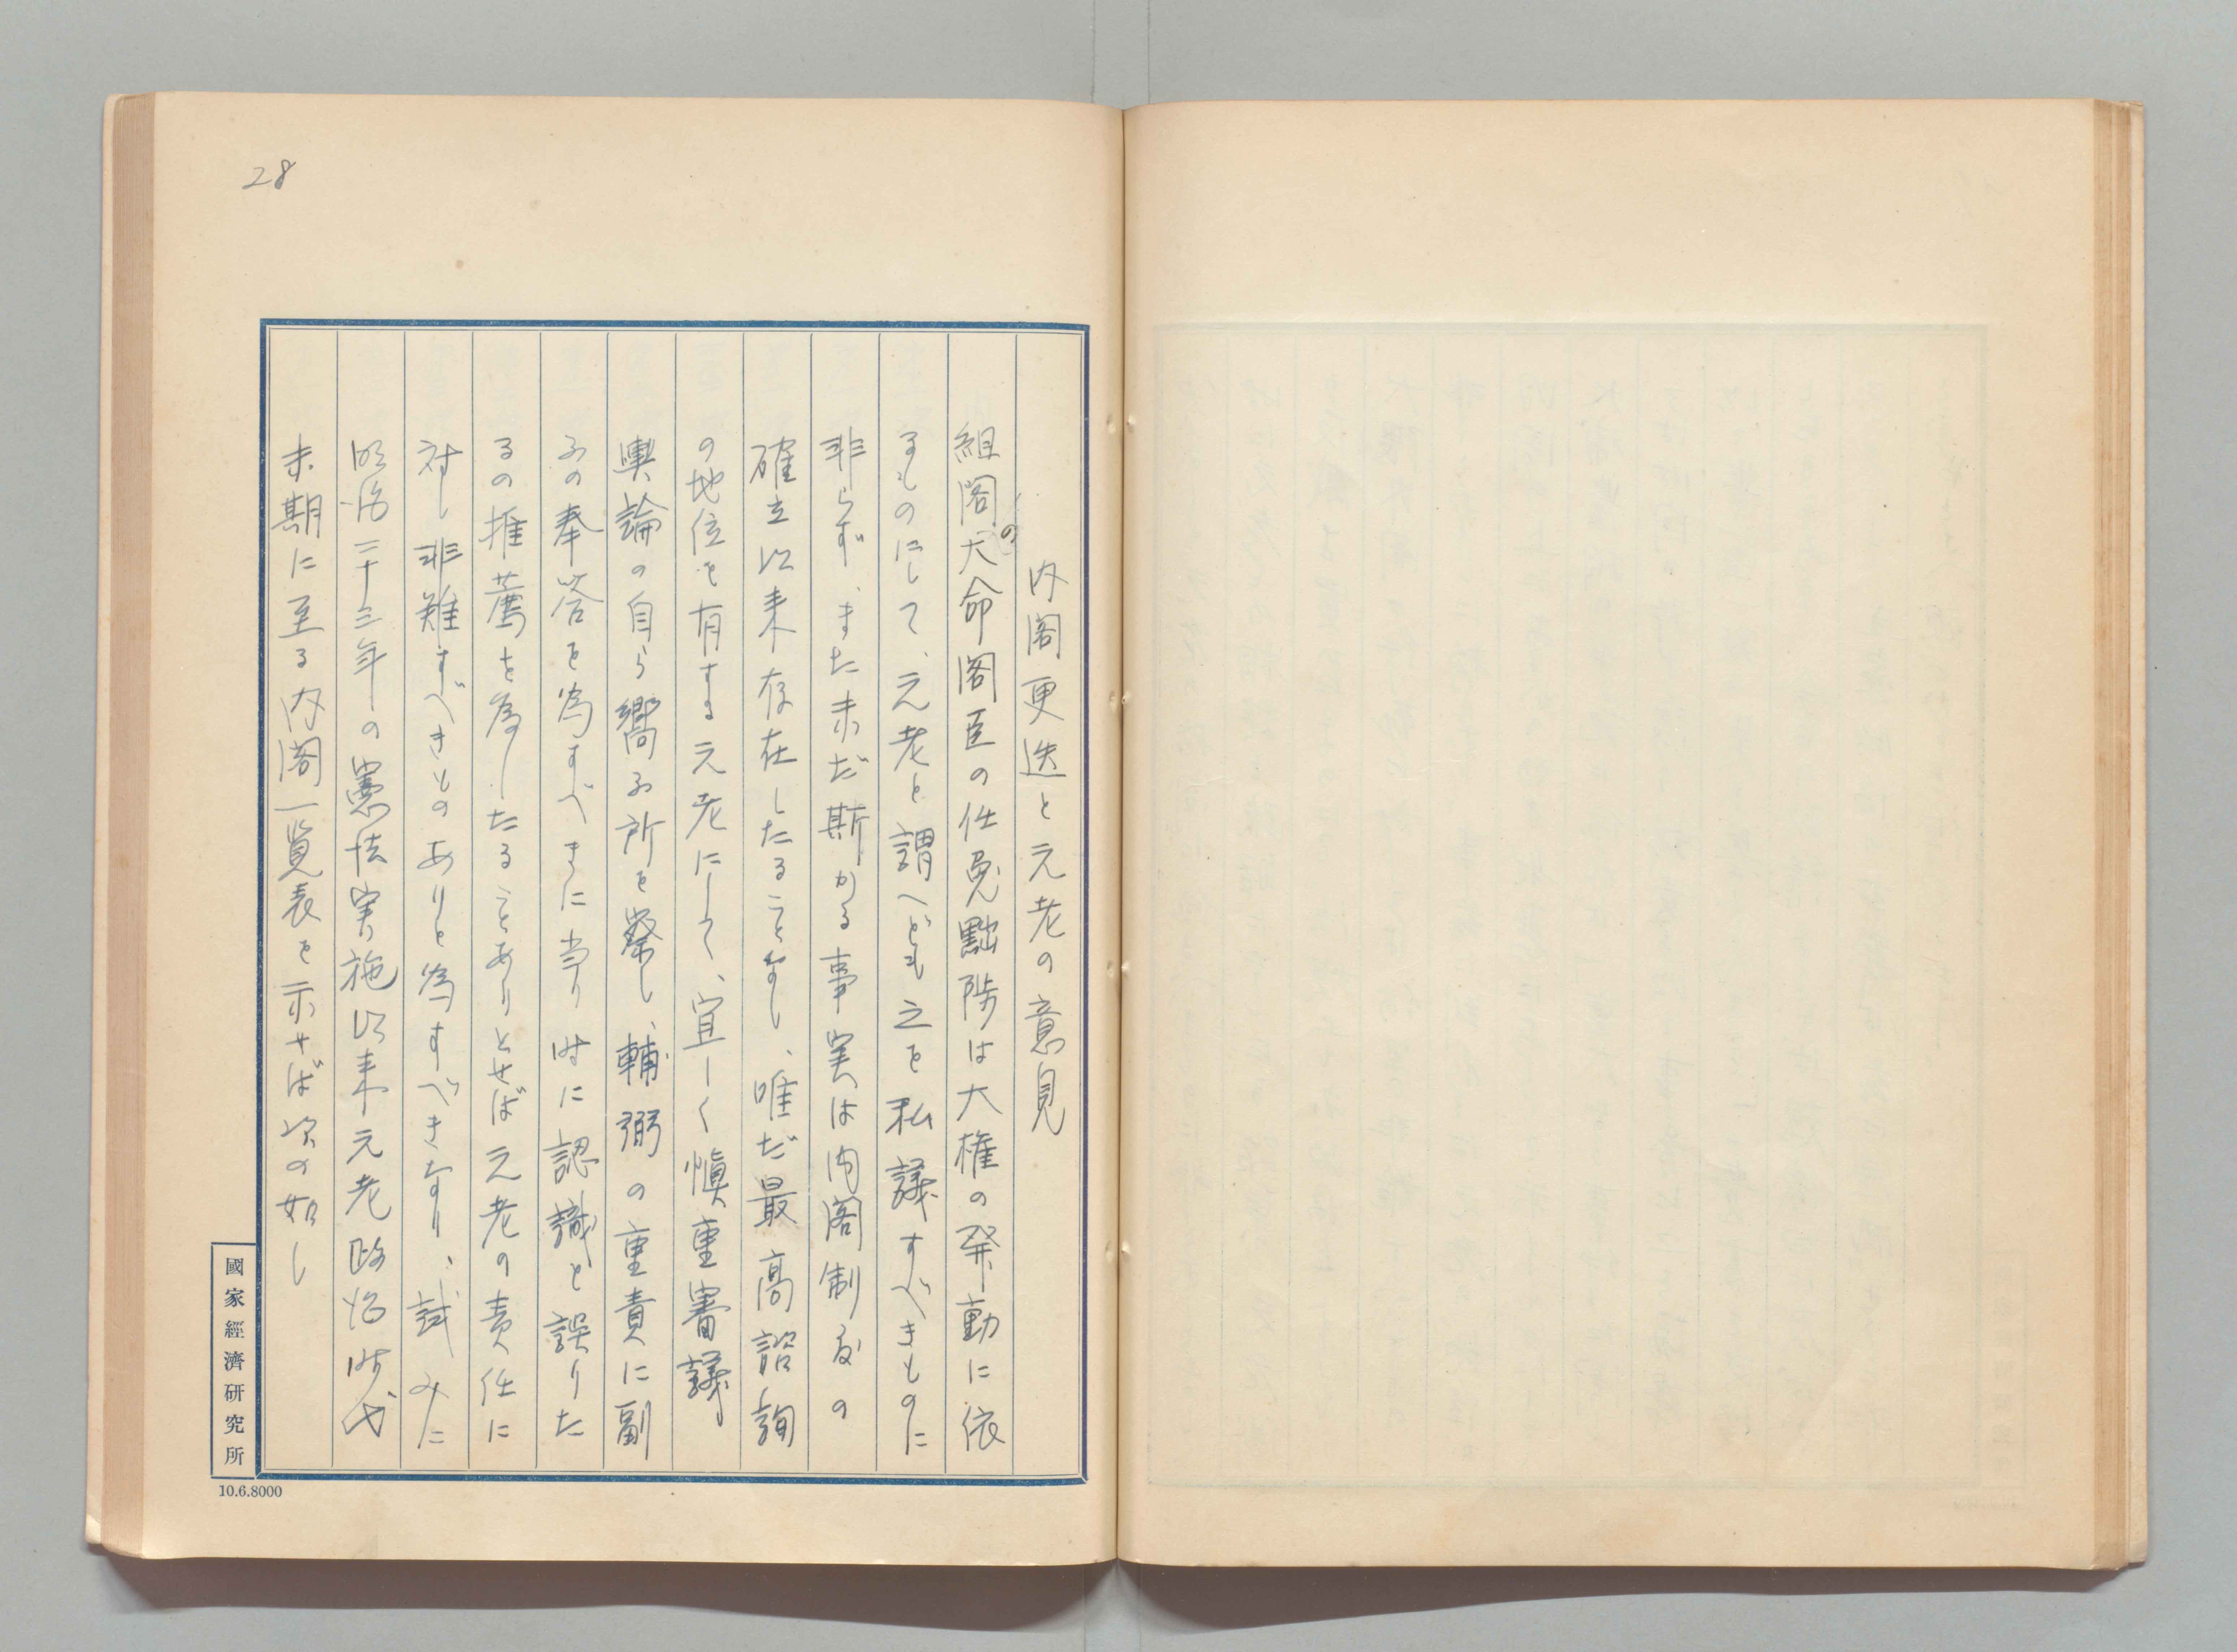 28
内閣更迭と元老の意見
組閣の大命閣臣の任免黜陟は大権の発動に依
るものにして、元老と謂へども之を私議すべきものに
非らず、また未だ斯かる事実は内閣制度の
確立以来存在したることなし、唯だ最高諮詢
の地位を有する元老にして、宜しく慎重審議
輿論の自ら嚮ふ所を察し、輔弼の重責に副
ふの奉答を為すべきに当り時に認識を誤りた
るの推薦を為したることありとせば元老の責任に
対し非難すべきものありと為すべきなり、試みに
明治二十三年の憲法実施以来元老政治時代
末期に至る内閣一覧表を示せば次の如し
國家經濟研究所
10.6.8000